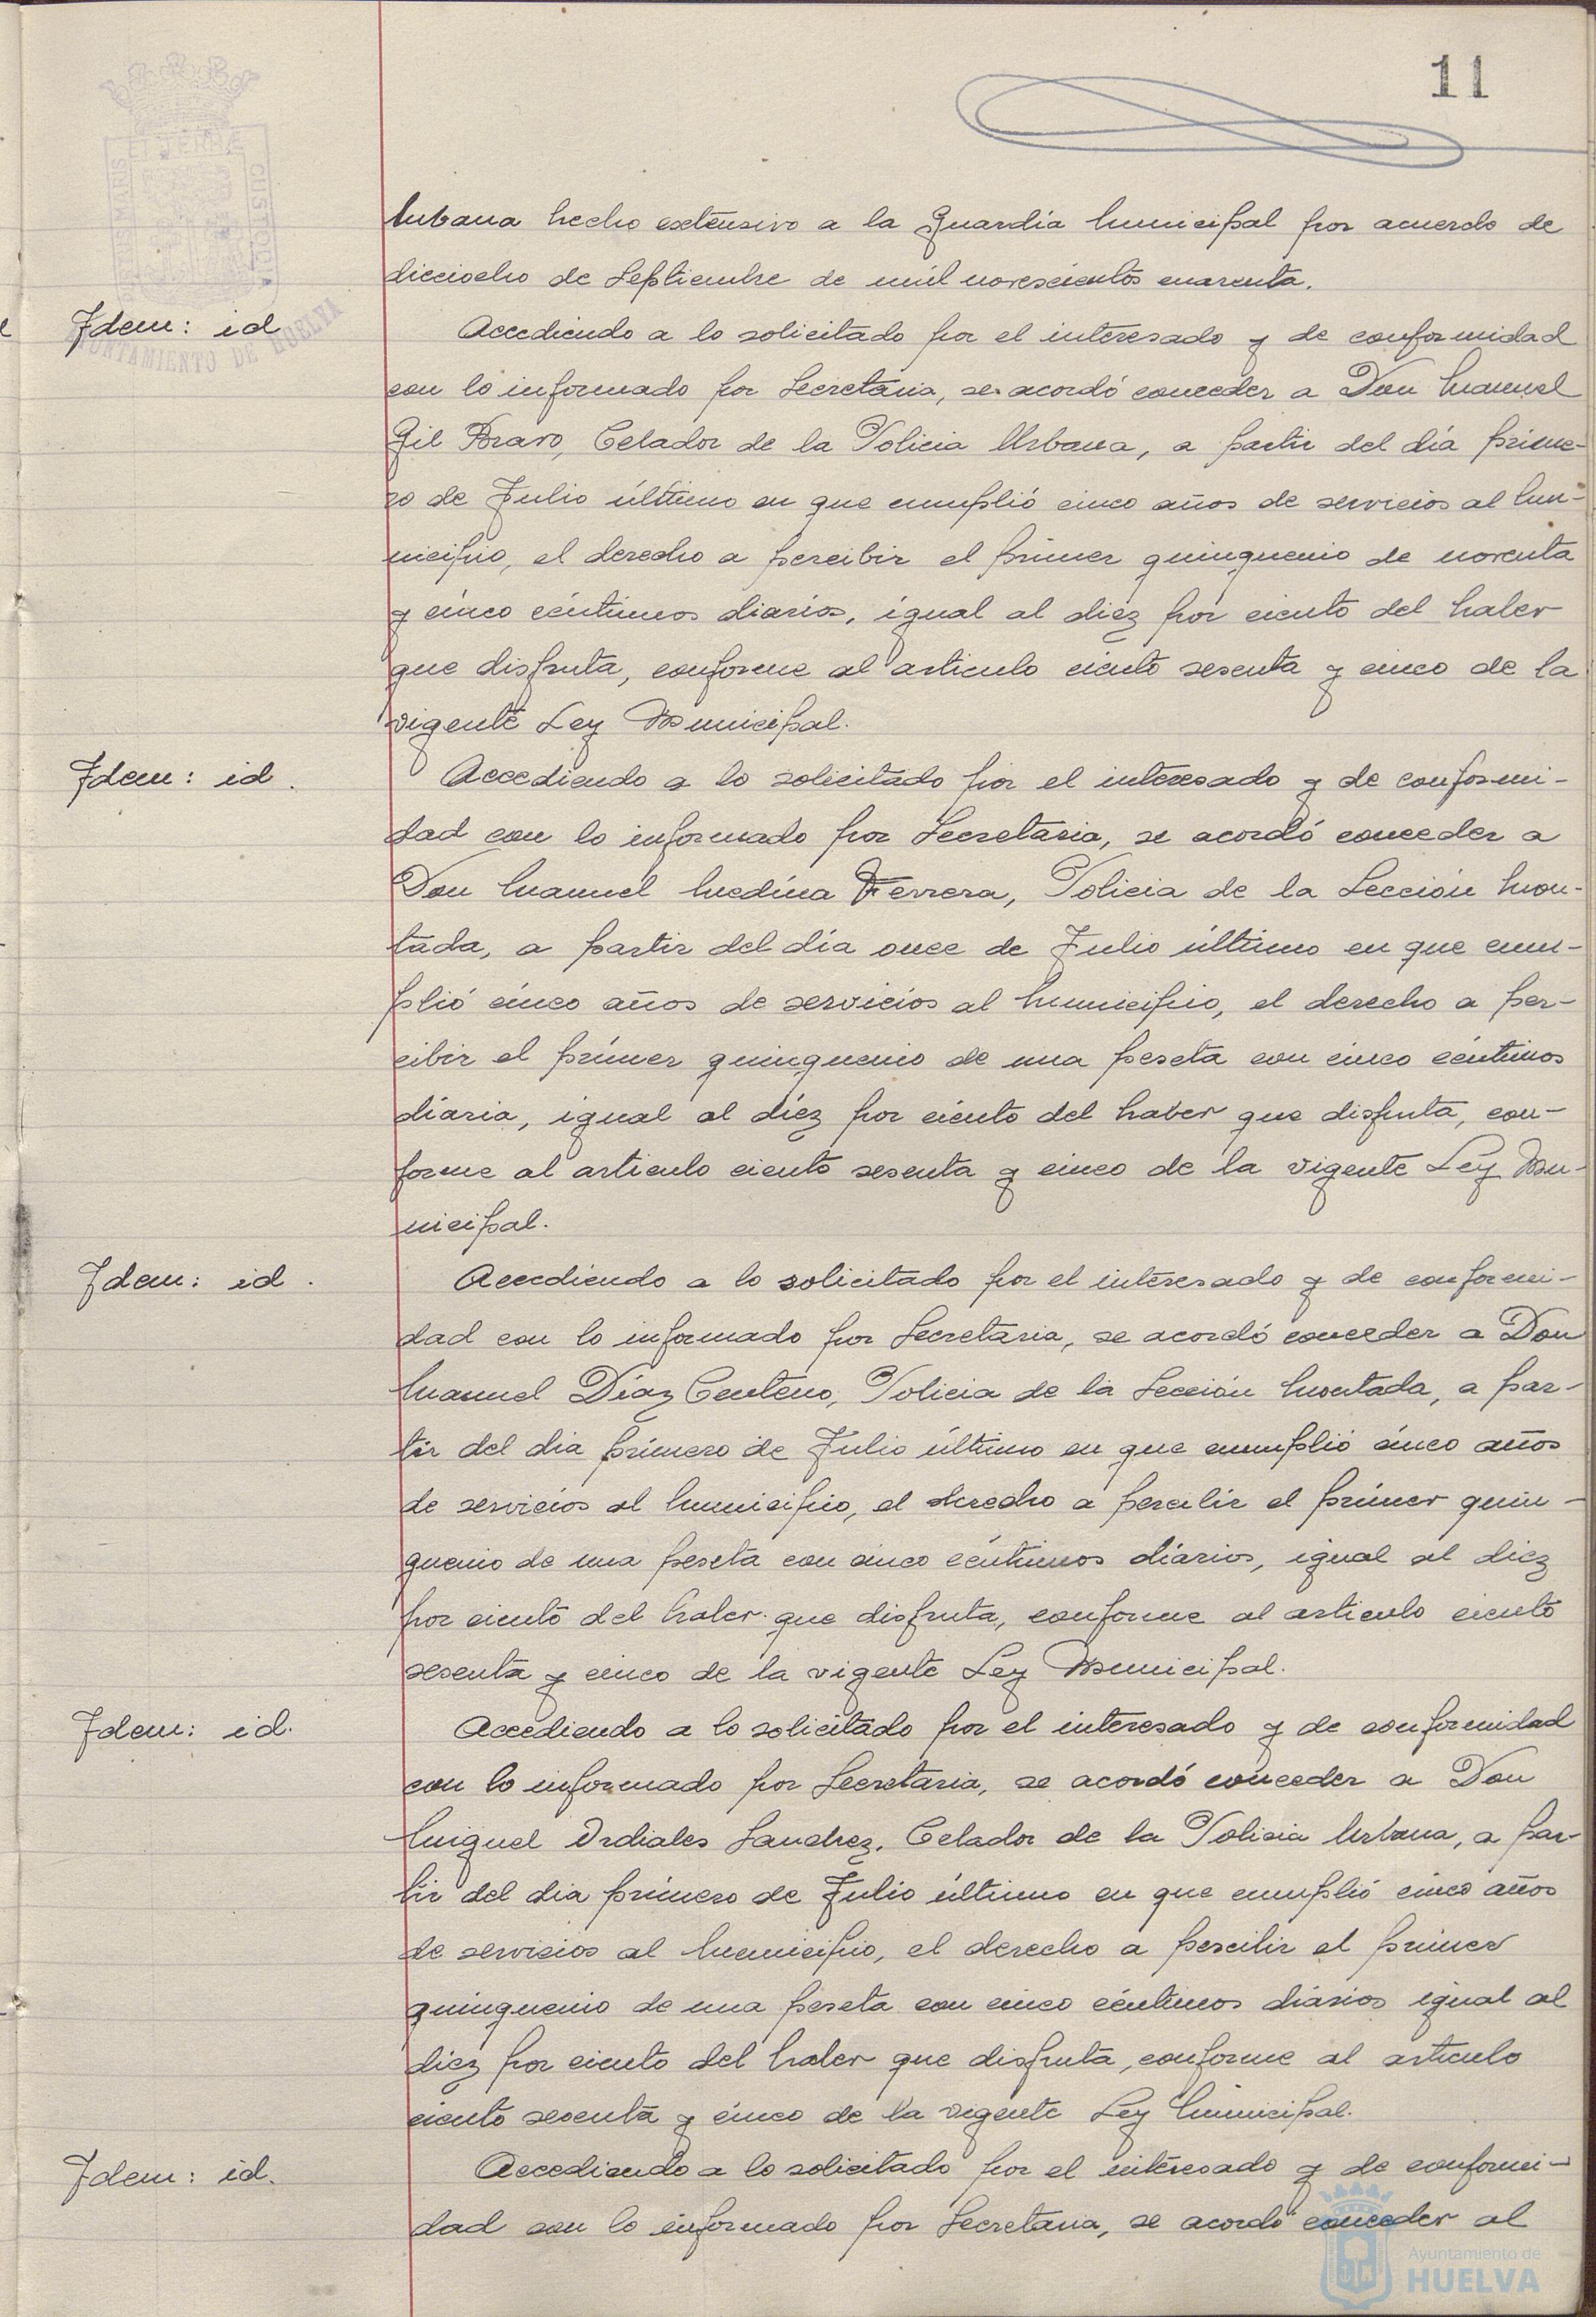 11
Urbana hecho extensivo a la Guardia Municipal por acuerdo de
dieciocho de Septiembre de mil novescientos cuarenta.
Idem: id
Accediendo a lo solicitado por el interesado y de conformidad
con lo informado por Secretaria, se acordó conceder a Don Manuel
Gil Bravo, Celador de la Policia Urbana, a partir del día prime-
ro de Julio último en que cumplió cinco años de servicios al Mu-
nicipio, el derecho a percibir el primer quinquenio de noventa
y cinco céntimos diarios, igual al diéz por ciento del haber
que disfruta, conforme al articulo ciento sesenta y cinco de la
vigente Ley Municipal.
Idem: id.
Accediendo a lo solicitado por el interesado y de conformi-
dad con lo informado por Secretaria, se acordó conceder a
Don Manuel Medina Ferrera, Policia de la Sección Mon-
tada, a partir del día once de Julio último en que cum-
plió cinco años de servicios al Municipio, el derecho a per-
cibir el primer quinquenio de una peseta con cinco céntimos
diaria, igual al diéz por ciento del haber que disfruta, con-
forme al articulo ciento sesenta y cinco de la vigente Ley Mu-
nicipal.
Idem: id.
Accediendo a lo solicitado por el interesado y de conformi-
dad con lo informado por Secretaria, se acordó conceder a Don
Manuel Díaz Centeno, Policia de la Sección Montada, a par-
tir del dia primero de Julio último en que cumplió cinco años
de servicios al Municipio, el derecho a percibir el primer quin-
quenio de una peseta con cinco céntimos diarios, igual al diez
por ciento del haber que disfruta, conforme al articulo ciento
sesenta y cinco de la vigente Ley Municipal.
Idem: id.
Accediendo a lo solicitado por el interesado y de conformidad
con lo informado por Secretaria, se acordó conceder a Don
Miguel Ordiales Sanchez, Celador de la Policia Urbana, a par-
tir del dia primero de Julio último en que cumplió cinco años
de servicios al Municipio, el derecho a percibir el primer
quinquenio de una peseta con cinco céntimos diarios igual al
diez por ciento del haber que disfruta, conforme al articulo
ciento sesenta y cinco de la vigente Ley Municipal.
Idem: id.
Accediendo a lo solicitado por el interesado y de conformi-
dad con lo informado por Secretaria, se acordó conceder al
Ayuntamiento de
HUELVA